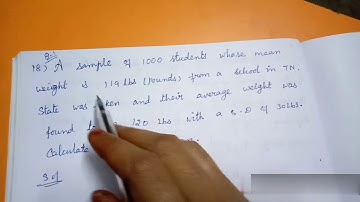 Q:-1
18) A Sample of 1000 students whose mean
weight is 119 lbs (Pounds) from a School in T.N.
State was taken and their average weight was
found 120 lbs with a S.D of 30 lbs.
Calculate
Sol